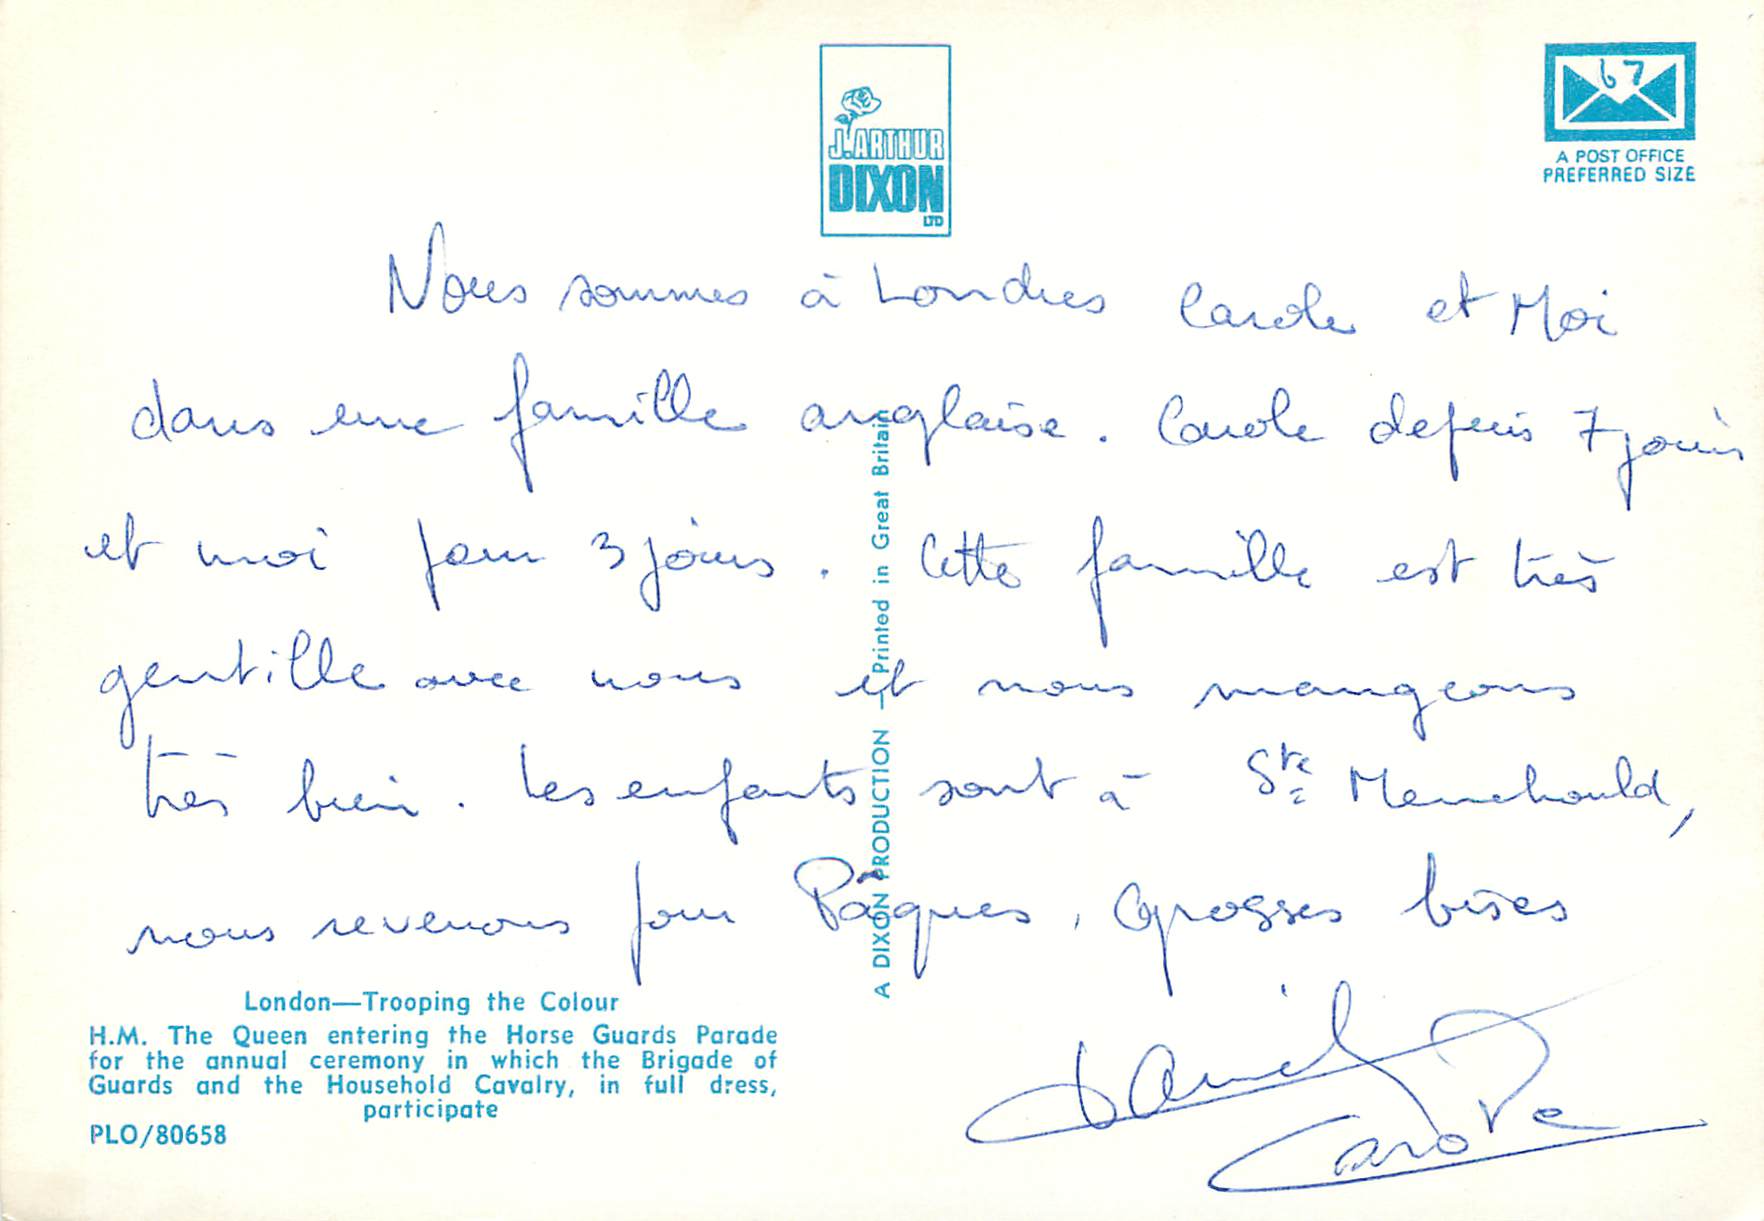 J. ARTHUR
DIXON
LTD
67
A POST OFFICE
PREFERRED SIZE
Nous sommes à Londres Carole et Moi
dans une famille anglaise. Carole depuis 7 jours
et moi pour 3 jours. Cette famille est très
gentille avec nous et nous mangeons
très bien. Les enfants sont à Ste Menehould,
nous revenons pour Pâques, Grosses bises
Daniel
Carole
A DIXON PRODUCTION — Printed in Great Britain
London—Trooping the Colour
H.M. The Queen entering the Horse Guards Parade
for the annual ceremony in which the Brigade of
Guards and the Household Cavalry, in full dress,
participate
PLO/80658